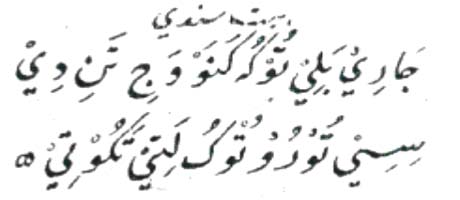 بيت سندي
جَارِيْ بَلِيْ تُوْكُ كَنَوْ وَجِ تَنِ دِيْ
سِسِيْ تُوْرُوْ تُوْكُ لَتِيْ تَكُوْ تِيْ